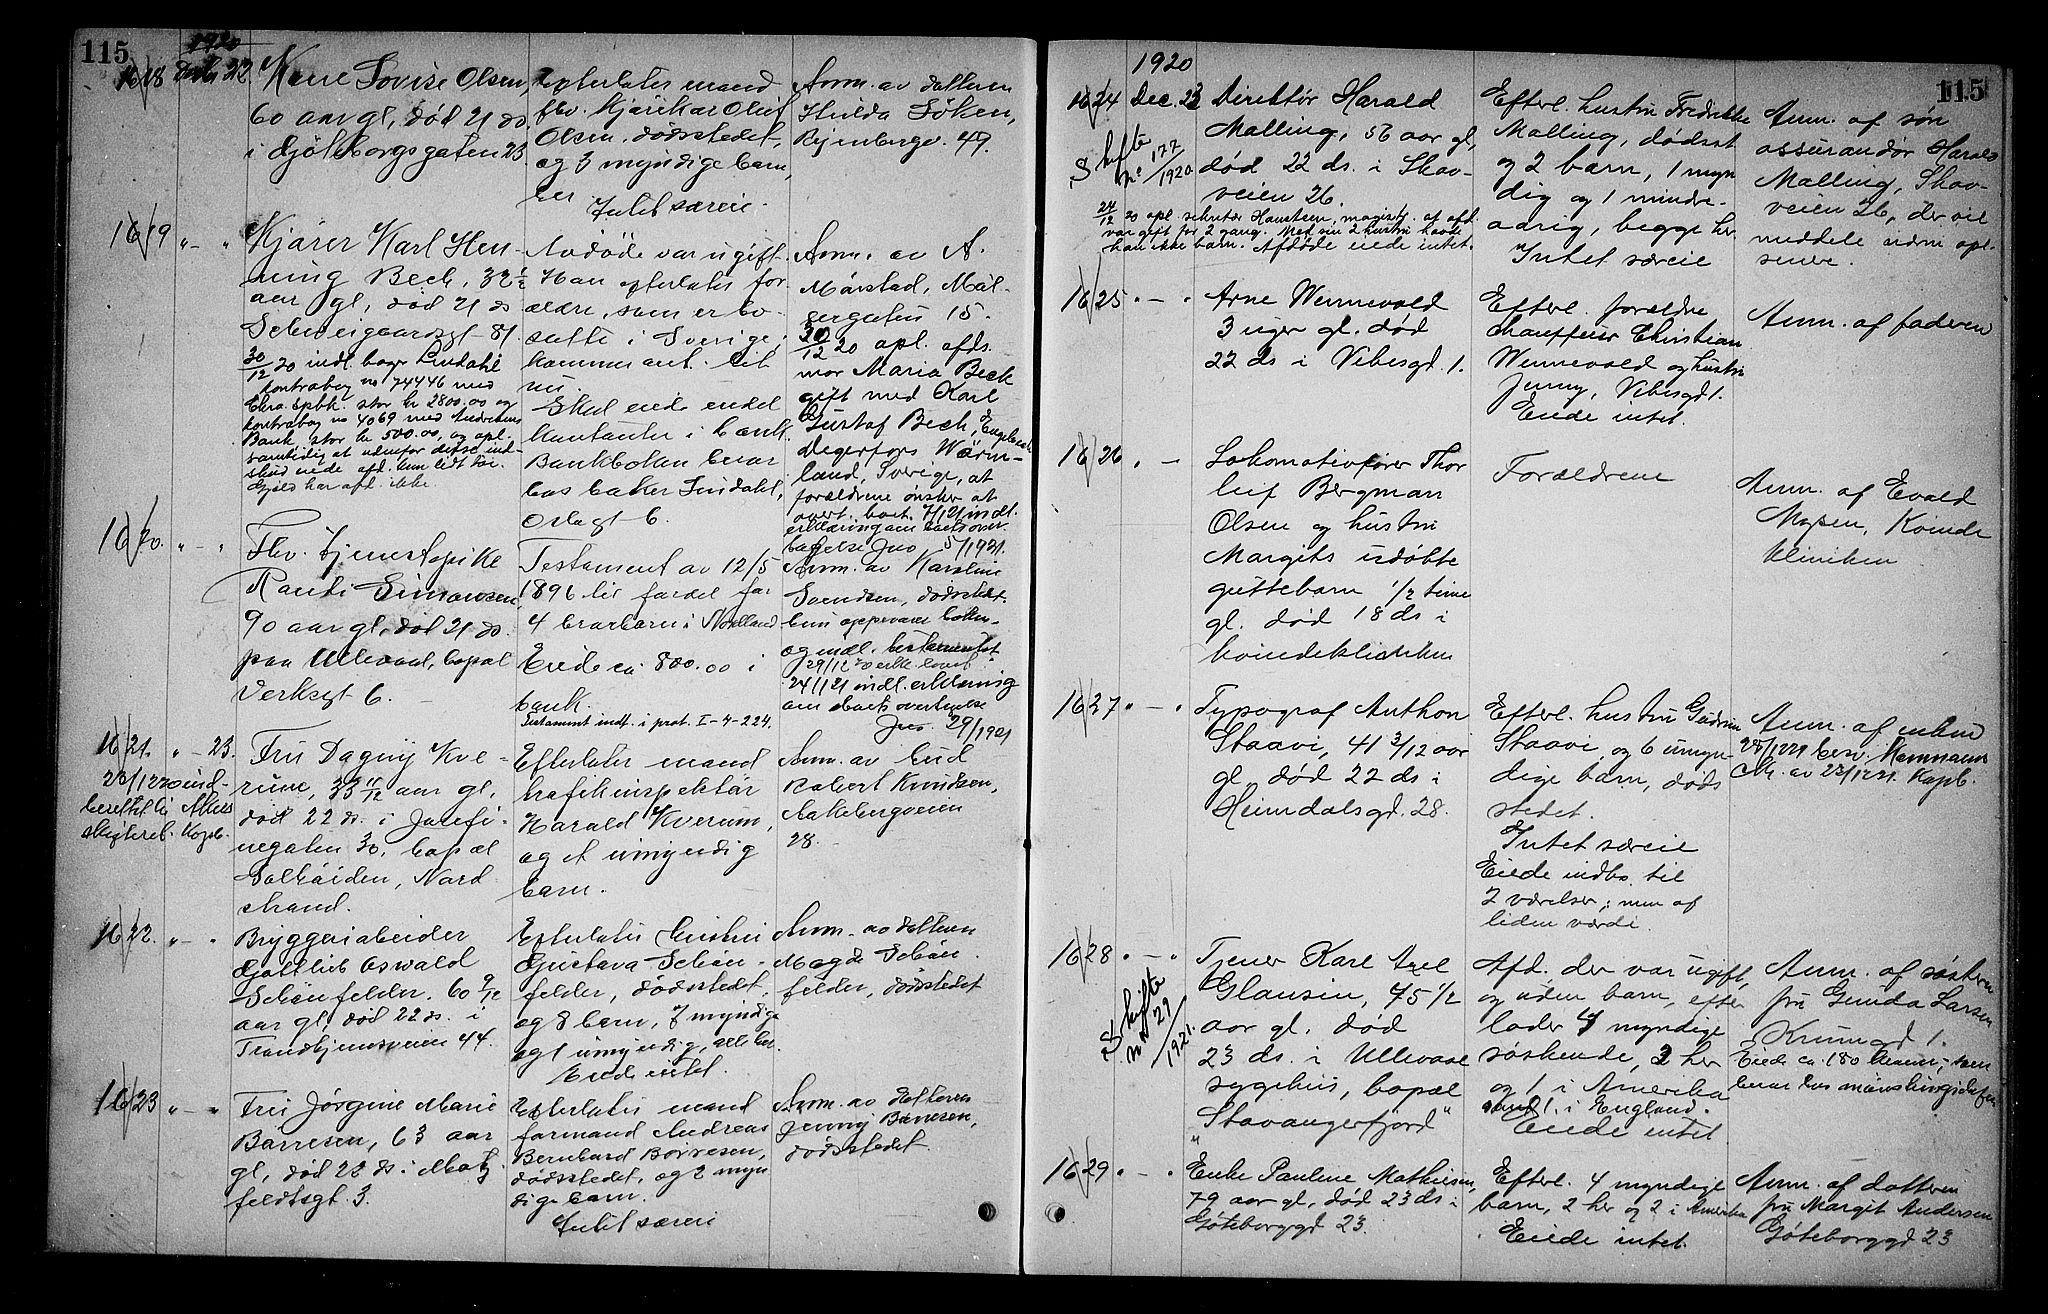 115
1920
1618 Decbr 22. Kone Lovise Olsen,
60 aar gl, død 21 ds
i Gjøteborgsgaten 23.
Efterlater mand
fhv. Olaf
Olsen, dødsstedet,
og 3 myndige barn,
her
Intet særeie.
Anm. av datteren
Hulda
49.
1619 " — "
Kjører Karl Hen-
ning Bech, 32 1/2
aar gl, død 21 ds
Schweigaardsgt 81.
30/12 20 indl. Lindahl
kontrabog no 74446 med
Chra. Spbk. stor kr 2800.00 og
kontrabog no 4069 med Andresens
Bank, stor kr 500.00, og opl.
samtidig at utenfor disse ind-
skud eiede afd. kun lidt tøi.
Gjeld har afd. ikke.
Avdøde var ugift.
Han efterlater for-
ældre, som er bo-
satte i Sverige,
Skal eiede endel
kontanter i bank.
Bankboken bear
hos baker Lindahl,
Oslogt 6.
Anm. av A.
Mørstad, Møl-
lergaten 15.
30/12 20 opl. afds.
mor Maria Bech
gift med Karl
Gustaf Bech,
Degerfors Wärm-
land, Sverige, at
forældrene ønsker at
overt. boet. 7/1 21 indl.
erklæring om boets over-
tagelse Jno 5/1921.
1620. " — "
Fhv. tjenestepike
Randi Simonsen,
90 aar gl, død 21 ds.
paa Ullevaal, bopæl
Verksgt 6.
Testament av 12/5
1896 til fordel for
4 brorbarn i Nordland
Eiede ca 800.00 i
bank.
Testament indf. i prot. I-4-224.
Anm. av Karoline
Svendsen, dødsstedet.
hun opbevarer boken
og indl. testamentet
29/12 20
24/1 21 indl. erklæring
om boets overtagelse
Jno. 29/1921
1621. " — 23.
23/12 20 ind-
berettet til Akers
skifteret. Kopb.
Fru Dagny Kve-
rum, 33 11/12 aar gl,
død 22 ds. i Josefi-
negaten 30, bopæl
Solheiden, Nord
strand.
Efterlater mand
trafikinspektør
Harald Kverum,
og et umyndig
barn.
Anm. av bud
Robert Knudsen,
Aakebergveien
28.
1622. " — "
Bryggeriarbeider
Gottlieb Oswald
Schönfelder, 60 9/12
aar gl, død 22 ds. i
Trondhjemsveien 44.
Efterlater hustru
Gustava Schön-
felder, dødsstedet,
og 8 barn, 7 myndige
og 1 umyndig, alle her.
Eiede intet.
Anm. av datteren
Magda Schön-
felder, dødsstedet
1623 " — "
Fru Jørgine Marie
Børresen, 63 aar
gl, død 22 ds. i Motz
feldtsgt. 3.
Efterlater mand
formand Andreas
Bernhard Børresen,
dødsstedet, og 2 myn
dige barn.
Intet særeie
Anm. av datteren
Jenny Børresen,
dødsstedet.
1920
115
1624 Dec. 23
Skifte
no 177/1920
Direktør Harald
Malling, 56 aar gl,
død 22 ds. i Skov-
veien 26.
24/12 20 opl. sekretær Hansteen, magistr. at afd.
var gift for 2 gang. Med sin 2 hustru havde
han ikke barn. Afdøde eiede intet.
Efterl. hustru Fredrikke
Malling, dødsst
og 2 barn, 1 myn
dig og 1 mindre-
aarig, begge her.
Intet særeie
Anm. af søn
assurandør Harald
Malling, Skov-
veien 26, der vil
meddele nærm opl.
senere.
1625 " — "
Arne Wennevold
3 uger gl. død
22 ds i Vibesgd. 1.
Efterl. forældre
chauffeur Christian
Wennevold og hustru
Jenny, Vibesgd 1.
Eiede intet.
Anm. af faderen
1626 " —
Lokomotivfører Thor
leif Bergman
Olsen og hustru
Margits udøbte
guttebarn 1/2 time
gl. død 18 ds i
kvindeklinikken
Forældrene
Anm. af Evald
Kvinde
kliniken
1627 " — "
Typograf Anthon
Staavi, 41 3/12 aar
gl, død 22 ds i
Heimdalsgd. 28.
Efterl. hustru Gudrun
Staavi, og 6 umyn-
dige barn, døds
stedet.
Intet særeie
Eiede indbo til
2 værelser; men af
liden værdi.
Anm. af enken
Kopb.
1628 " — "
Skifte
no 29/1921.
Tjener Karl Axel
Clausen, 75 1/2
aar gl. død
23 ds. i Ullevaal
sygehus, bopæl
"Stavangerfjord"
Afd. der var ugift,
og uden barn, efter
lader 4 myndige
søskende, 2 her
og 1 i Amerika
samt 1 i England.
Eiede intet
Anm. af søsteren
fru Gunda Larsen
Krumgd 1.
Eiede ca. 180 kroner, som
beror hos mønstringschefen
1629 " — "
Enke Pauline Mathiesen,
79 aar gl, død 23 ds i
Gøteborggd 23.
Efterl. 4 myndige
barn, 2 her og 2 i Amerika
Eiede intet.
Anm. af datteren
fru Margit Andersen
Gøteborggd 23